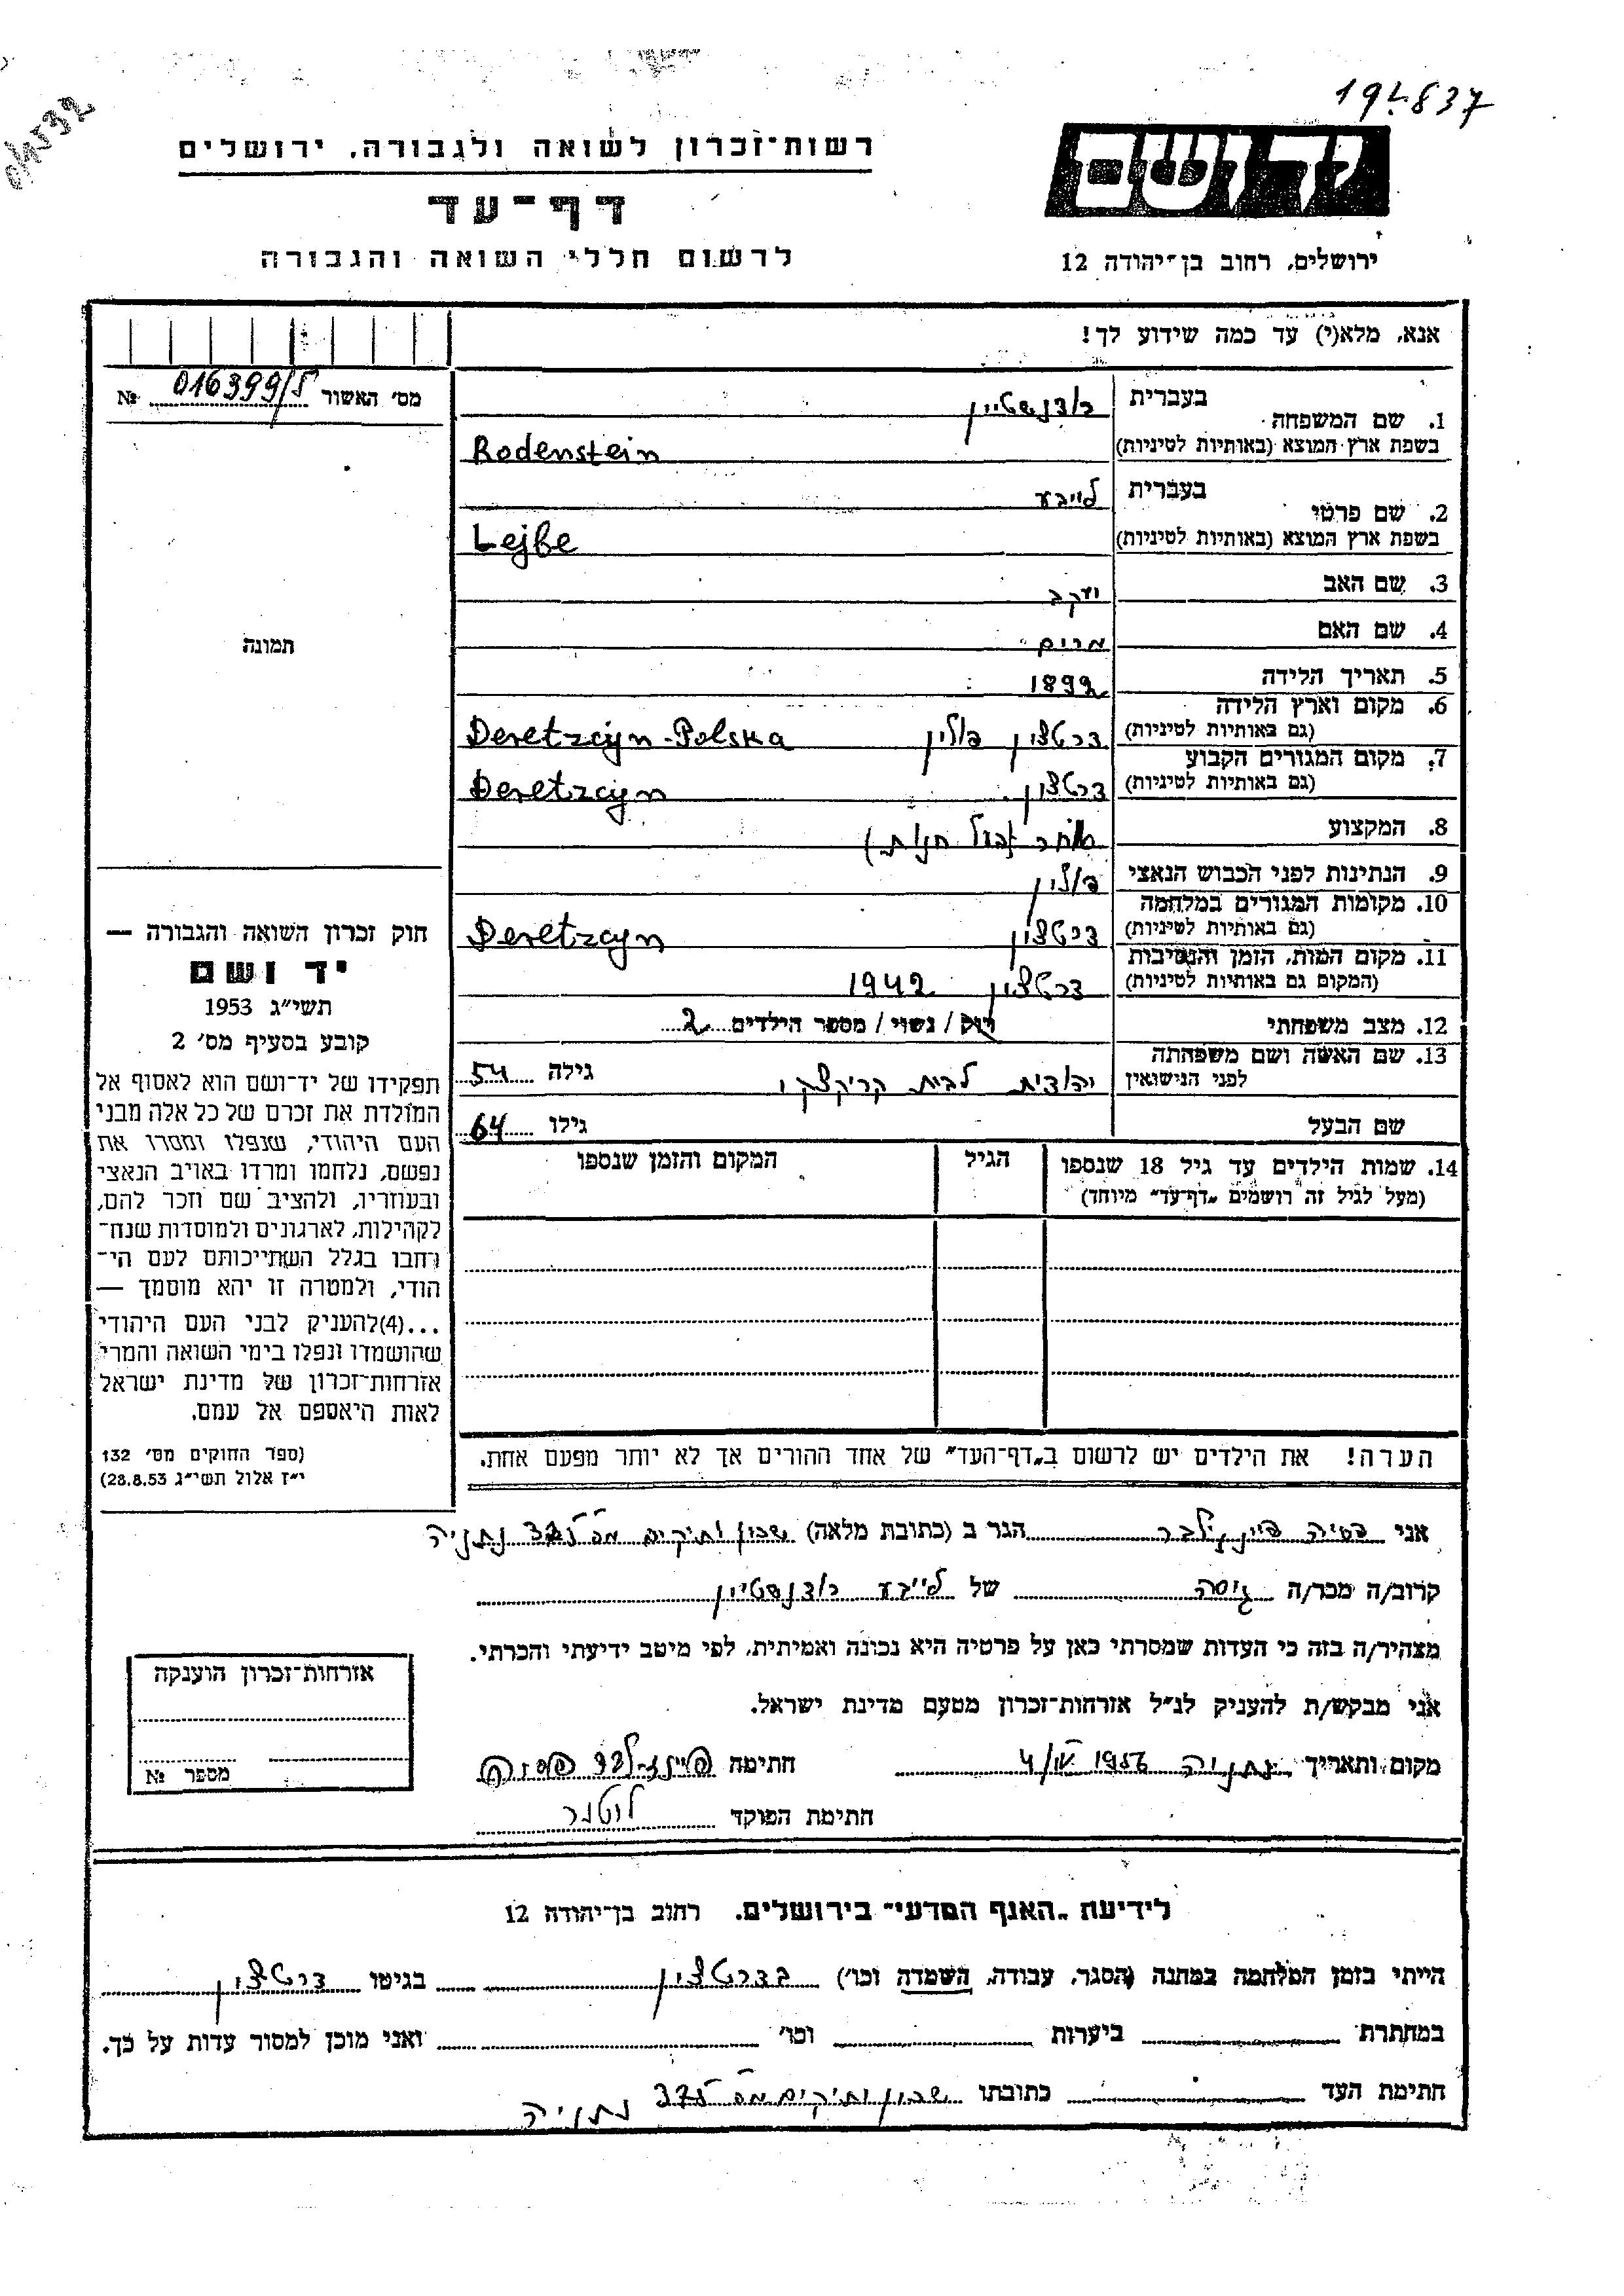 194837
רשות-זכרון לשואה ולגבורה, ירושלים
יד ושם
דף-עד
לרשום חללי השואה והגבורה
ירושלים, רחוב בן-יהודה 12
אנא, מלא(י) עד כמה שידוע לך!
מס' האשור 016399/5 №
1. שם המשפחה
בעברית רודנשטיין
בשפת ארץ המוצא (באותיות לטיניות) Rodenstein
2. שם פרטי
בעברית לייבע
בשפת ארץ המוצא (באותיות לטיניות) Lejbe
3. שם האב יעקב
4. שם האם מרים
תמונה
5. תאריך הלידה 1892
6. מקום וארץ הלידה
(גם באותיות לטיניות) דרטצין פולין Deretzcyn-Polska
7. מקום המגורים הקבוע
(גם באותיות לטיניות) דרטצין Deretzcyn
8. המקצוע סוחר (בעל חנות)
9. הנתינות לפני הכבוש הנאצי פולין
10. מקומות המגורים במלחמה
(גם באותיות לטיניות) דרטצין Deretzcyn
11. מקום המות, הזמן והנסיבות
(המקום גם באותיות לטיניות) דרטצין 1942
12. מצב משפחתי רוק / נשוי / מספר הילדים 2
13. שם האשה ושם משפחתה
לפני הנישואין יהודית לבית גילה 54
שם הבעל גילו 64
14. שמות הילדים עד גיל 18 שנספו הגיל המקום והזמן שנספו
(מעל לגיל זה רושמים "דף-עד" מיוחד)
הערה! את הילדים יש לרשום ב"דף-העד" של אחד ההורים אך לא יותר מפעם אחת.
חוק זכרון השואה והגבורה —
יד ושם
תשי"ג 1953
קובע בסעיף מס' 2
תפקידו של יד-ושם הוא לאסוף אל
המולדת את זכרם של כל אלה מבני
העם היהודי, שנפלו ומסרו את
נפשם, נלחמו ומרדו באויב הנאצי
ובעוזריו, ולהציב שם וזכר להם,
לקהילות, לארגונים ולמוסדות שנח-
רחבו בגלל השתייכותם לעם הי-
הודי, ולמטרה זו יהא מוסמך —
...(4) להעניק לבני העם היהודי
שהושמדו ונפלו בימי השואה והמרי
אזרחות-זכרון של מדינת ישראל
לאות היאספם אל עמם.
(ספר החוקים מס' 132
י"ז אלול תשי"ג 28.8.53)
אני בסיה הגר ב (כתובת מלאה) שכון ותיקים נתניה
קרוב/ה מכר/ה גיסה של לייבע רודנשטיין
מצהיר/ה בזה כי העדות שמסרתי כאן על פרטיה היא נכונה ואמיתית, לפי מיטב ידיעתי והכרתי.
אני מבקש/ת להעניק לנ"ל אזרחות-זכרון מטעם מדינת ישראל.
מקום ותאריך נתניה חתימה
חתימת הפוקד
אזרחות-זכרון הוענקה
מספר №
לידיעת "האגף המדעי" בירושלים, רחוב בן-יהודה 12
הייתי בזמן המלחמה במחנה (הסגר, עבודה, השמדה וכו') בדרטצין בגיטו דרטצין
במחתרת ביערות וכו' ואני מוכן למסור עדות על כך.
חתימת העד כתובתו שכון ותיקים נתניה